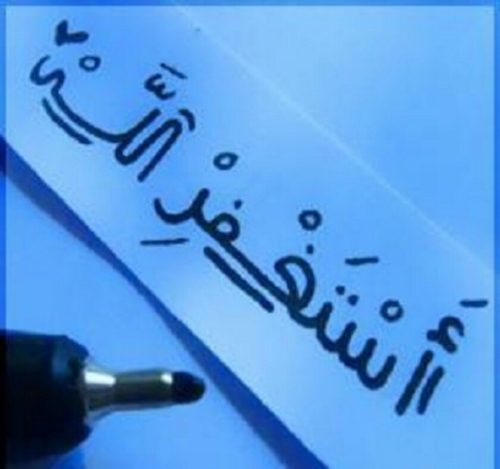 أَسْتَغْفِرْ اللَّه